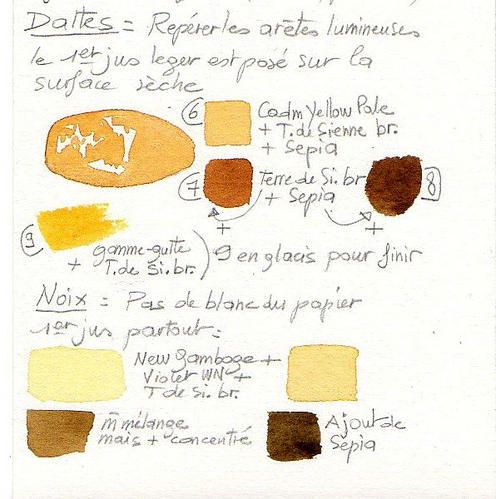 Dattes = Repérer les arêtes lumineuses
le 1er jus leger est posé sur la
surface sèche
6 Cadm Yellow Pale
+ T. de Sienne br.
+ Sepia
7 Terre de Si. br. 8
+ Sepia
+ +
9 gomme-gutte
+ T. de Si. br. ) 9 en glacis pour finir
Noix = Pas de blanc du papier
1er jus partout =
New Gamboge +
Violet WN +
T de Si. br.
m̄ mélange
mais + concentré
Ajout de
Sepia